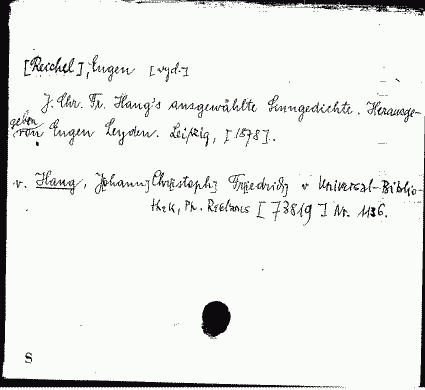 [Reichel], Eugen [vyd.]
J. Chr. Fr. Haug's ausgewählte Sinngedichte. Herausge-
geben
von Eugen Leyden. Leipzig, [1878].
v. Haug, Johann Christoph Friedrich v Universal-Biblio-
thek, Ph. Reclams [73819] Nr. 1136.
S